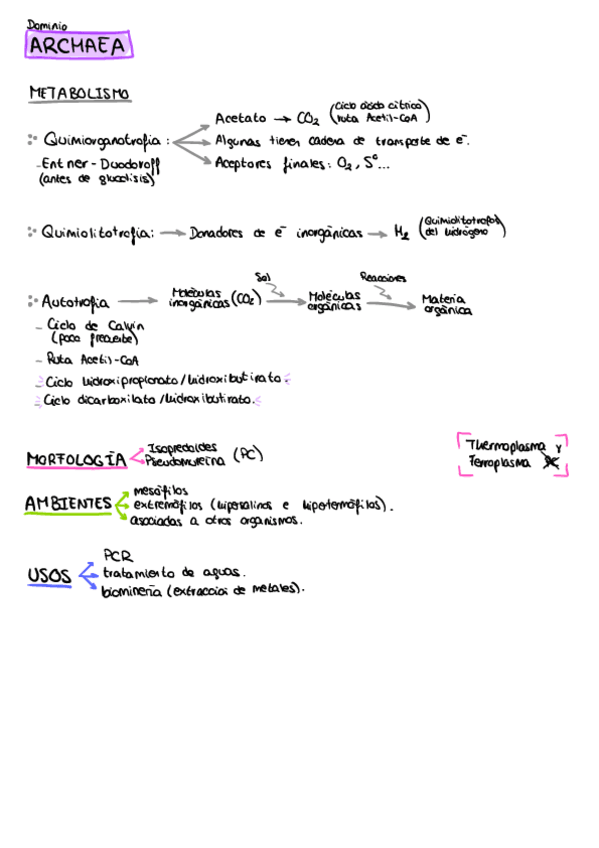 Dominio
ARCHAEA
METABOLISMO
Quimiorganotrofia:
Acetato → CO2 (Ciclo ácido cítrico) (ruta Acetil-CoA)
Algunas tienen cadena de transporte de e⁻.
Aceptores finales: O2, S°...
- Entner-Duodoroff
(antes de glucolisis)
Quimiolitotrofia: → Donadores de e⁻ inorgánicas → H2 (Quimiolitotrofos del hidrógeno)
Autotrofia → Moléculas inorgánicas (CO2) Sol → Moléculas orgánicas Reacciones → Materia orgánica
- Ciclo de Calvin
(poco frecuente)
- Ruta Acetil-CoA
Ciclo hidroxipropionato/hidroxibutirato
Ciclo dicarboxilato/hidroxibutirato.
MORFOLOGÍA
Isopredoides
Pseudomureína (PC)
Thermoplasma y
Ferroplasma
AMBIENTES
mesófilos
extremófilos (hipersalinos e hipertermófilos).
asociadas a otros organismos.
USOS
PCR
tratamiento de aguas.
biominería (extracción de metales).